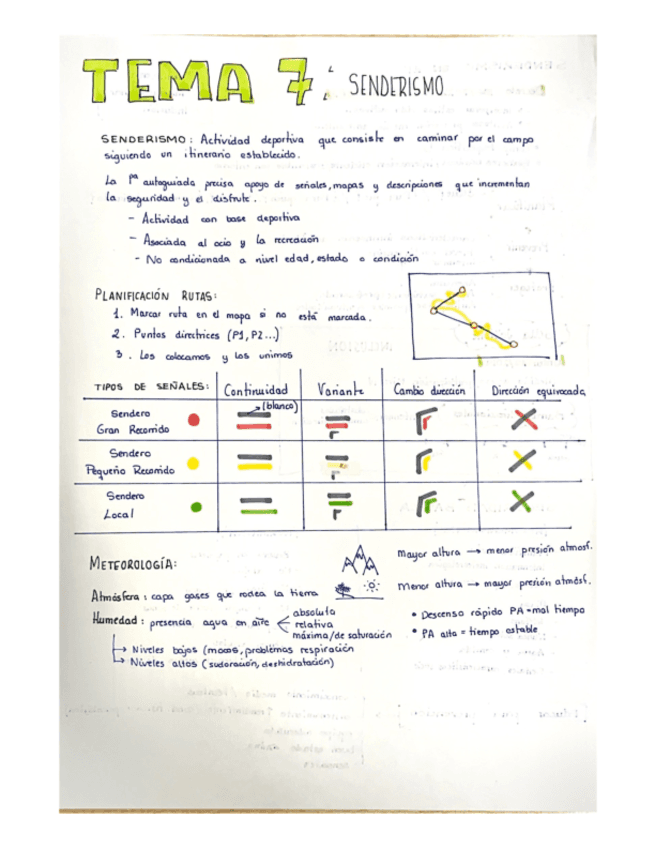 TEMA 7: SENDERISMO
SENDERISMO: Actividad deportiva que consiste en caminar por el campo
siguiendo un itinerario establecido.
La Pª autoguiada precisa apoyo de señales, mapas y descripciones que incrementan
la seguridad y el disfrute.
- Actividad con base deportiva
- Asociada al ocio y la recreación
- No condicionada a nivel edad, estado o condición
PLANIFICACIÓN RUTAS:
1. Marcar ruta en el mapa si no está marcada.
2. Puntos directrices (P1, P2...)
3. Los colocamos y los unimos
TIPOS DE SEÑALES: Continuidad Variante Cambio dirección Dirección equivocada
(blanco)
Sendero
Gran Recorrido
Sendero
Pequeño Recorrido
Sendero
Local
METEOROLOGÍA:
Atmósfera: capa gases que rodea la tierra
Humedad: presencia agua en aire
absoluta
relativa
máxima/de saturación
→ Niveles bajos (mocos, problemas respiración
→ Niveles altos (sudoración, deshidratación)
Mayor altura → menor presión atmosf.
Menor altura → mayor presión atmósf.
• Descenso rápido PA = mal tiempo
• PA alta = tiempo estable